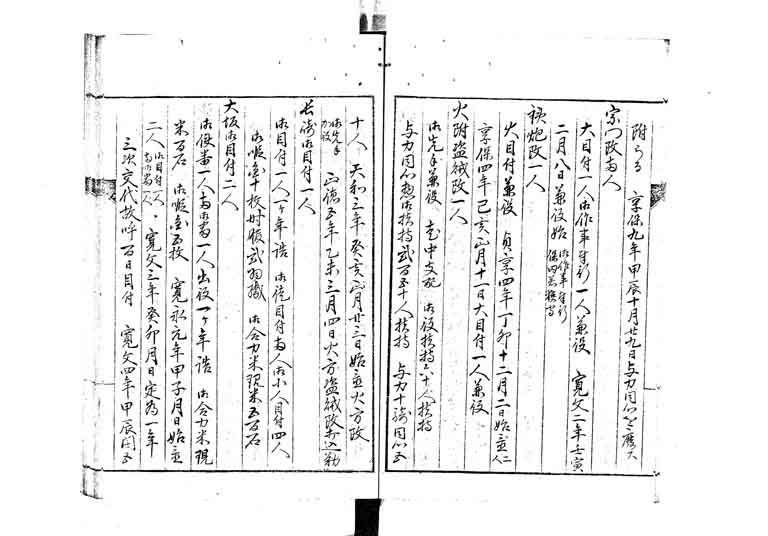 附ラる 享保九年甲辰十月廿九日与力同心を廃ス
宗門改両人
大目付一人御作事奉行一人兼役 寛文二年壬寅
二月八日兼役始 御作事奉行
鉄炮改一人
大目付兼役 貞享四年丁卯十二月二日始置一人
享保四年己亥正月十一日大目付一人兼役
火附盗賊改一人
御先手兼役 老中支配 御役扶持六十人扶持
与力同心 御扶持弐百五十人扶持 与力十騎同心五
十人 天和三年癸亥正月廿三日始置火方改
御先手加役 正徳五年乙未三月四日火方盗賊改打込勤
長崎御目付一人
御目付一人一ケ年詰 御徒目付両人御小人目付四人
御暇金十枚時服弐羽織 御合力米現米五百石
大坂御目付二人
御使番一人両御番一人出役一ケ年詰 御合力米現
米百石 御暇金五枚 寛永元年甲子月日始置
二人 御目付一人両御番一人 寛文三年癸卯月日定為一年
三次交代故呼百日目付 寛文四年甲辰閏五